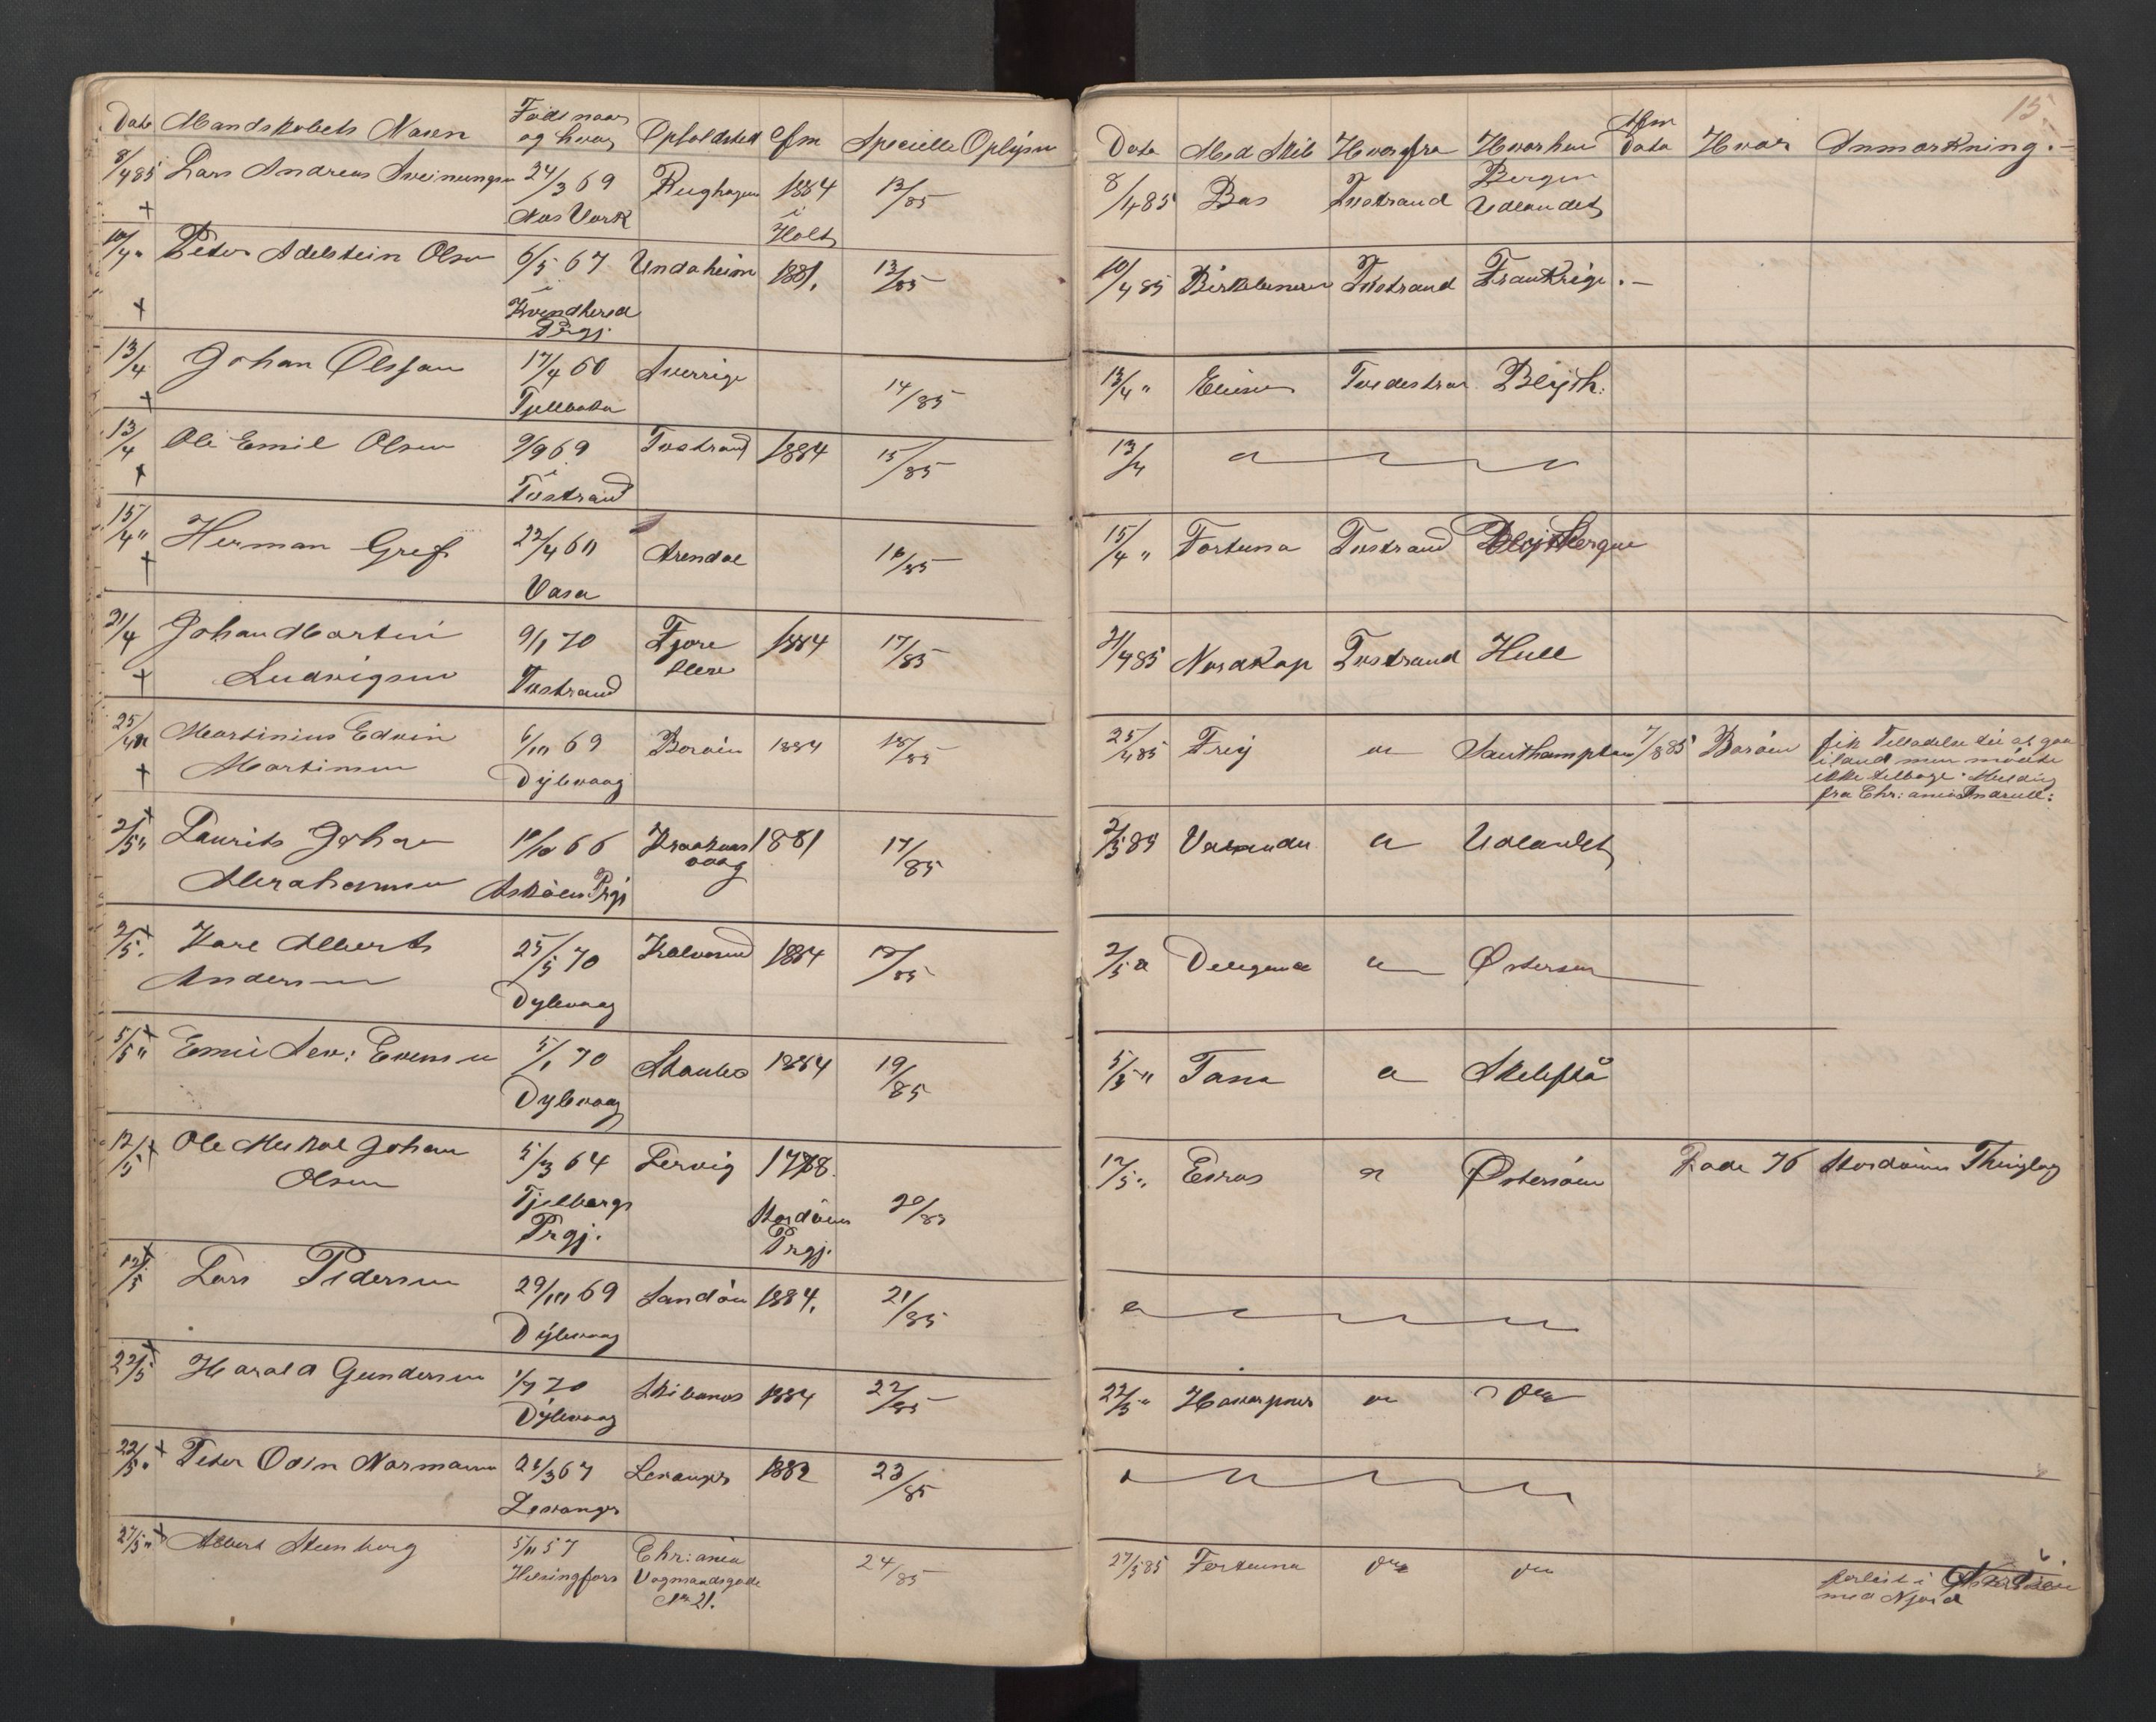 Date Mandskabets Navn Født naar og hvor Opholdsted Cfm Specielle Oplysn
8/4 85 Lars Andreas Sveinungsn 24/3 69 Rughagen 1884 13/85
+ Næs Værk i Holt
10/4 " Peter Adelstein Olsen 6/5 67 Undaheim 1881. 13/85
+ i Kvindherad
Prgj.
13/4 Johan Olsson 17/4 60 Sverrige 14/85
+ Fjellbaka
13/4 Ole Emil Olsen 9/9 69 Tvestrand 1884 15/85
+ i Tvestrand
15/4 " Herman Gref 22/4 60 Arendal 16/85
+ Vasa
21/4 Johan Martin 9/1 70 Fjære 1884 17/85
+ Ludvigsen Tvestrand
25/4 " Martinius Edvin 6/10 69 Borøen 1884 18/85
+ Martinsen Dybvaag
2/5 " + Laurits Johan 10/10 66 1881 17/85
Abrahamsen Askøens Prgj vaag
2/5. + Karl Albert 25/5 70 Kalvesund 1884 18/85
Andersen Dybvaag
5/5 " + Emil Sev: Evensen 5/1 70 1884 19/85
Dybvaag
12/5 + Ole Mikal Johan 5/3 64 Lervig 1878.
Olsen Fjelbergs Stordøens 20/85
Prgj. Prgj.
12/5 + Lars Pedersen 29/10 69 Sandøen 1884. 21/85
Dybvaag
22/5 + Harald Gundersen 1/7 70 1884 22/85
Dybvaag
22/5 " + Peter Odin Normann 21/3 67 Levanger 1882 23/85
Levanger
27/5 " + Albert Stenborg 5/11 57 Chr:ania 24/85
Helsingfors Vognmandsgade
No 21.
15
Date Med Skib Hvorfra Hvorhen Afm Data Hvor Anmærkning.
8/4 85 Bas Tvestrand Bergen
Udlandet
10/4 85 Birkebeneren Tvestrand Frankrige. —
13/4 " Elise Tvedestran Blyth.
13/4 " " " "
15/4 " Fortuna Tvestrand
21/4 85 Nordkap Tvestrand Hull
25/4 85 Frey " Southampton 7/8 85 Borøen fik Tilladelse til at gaa
iland men mødte
ikke tilbage. Melding
fra Chr:ania Indrull:
2/5 85 " Udlandet
2/5 " " Østersøen
5/5 " Tana " Skelefteå
12/5 " Eros " Østersøen Rode 76 Stordøens Thinglag
" " " " "
22/5 " " do
" " " " "
27/5 85 Fortuna do do forlist i Østersøen
med Njord